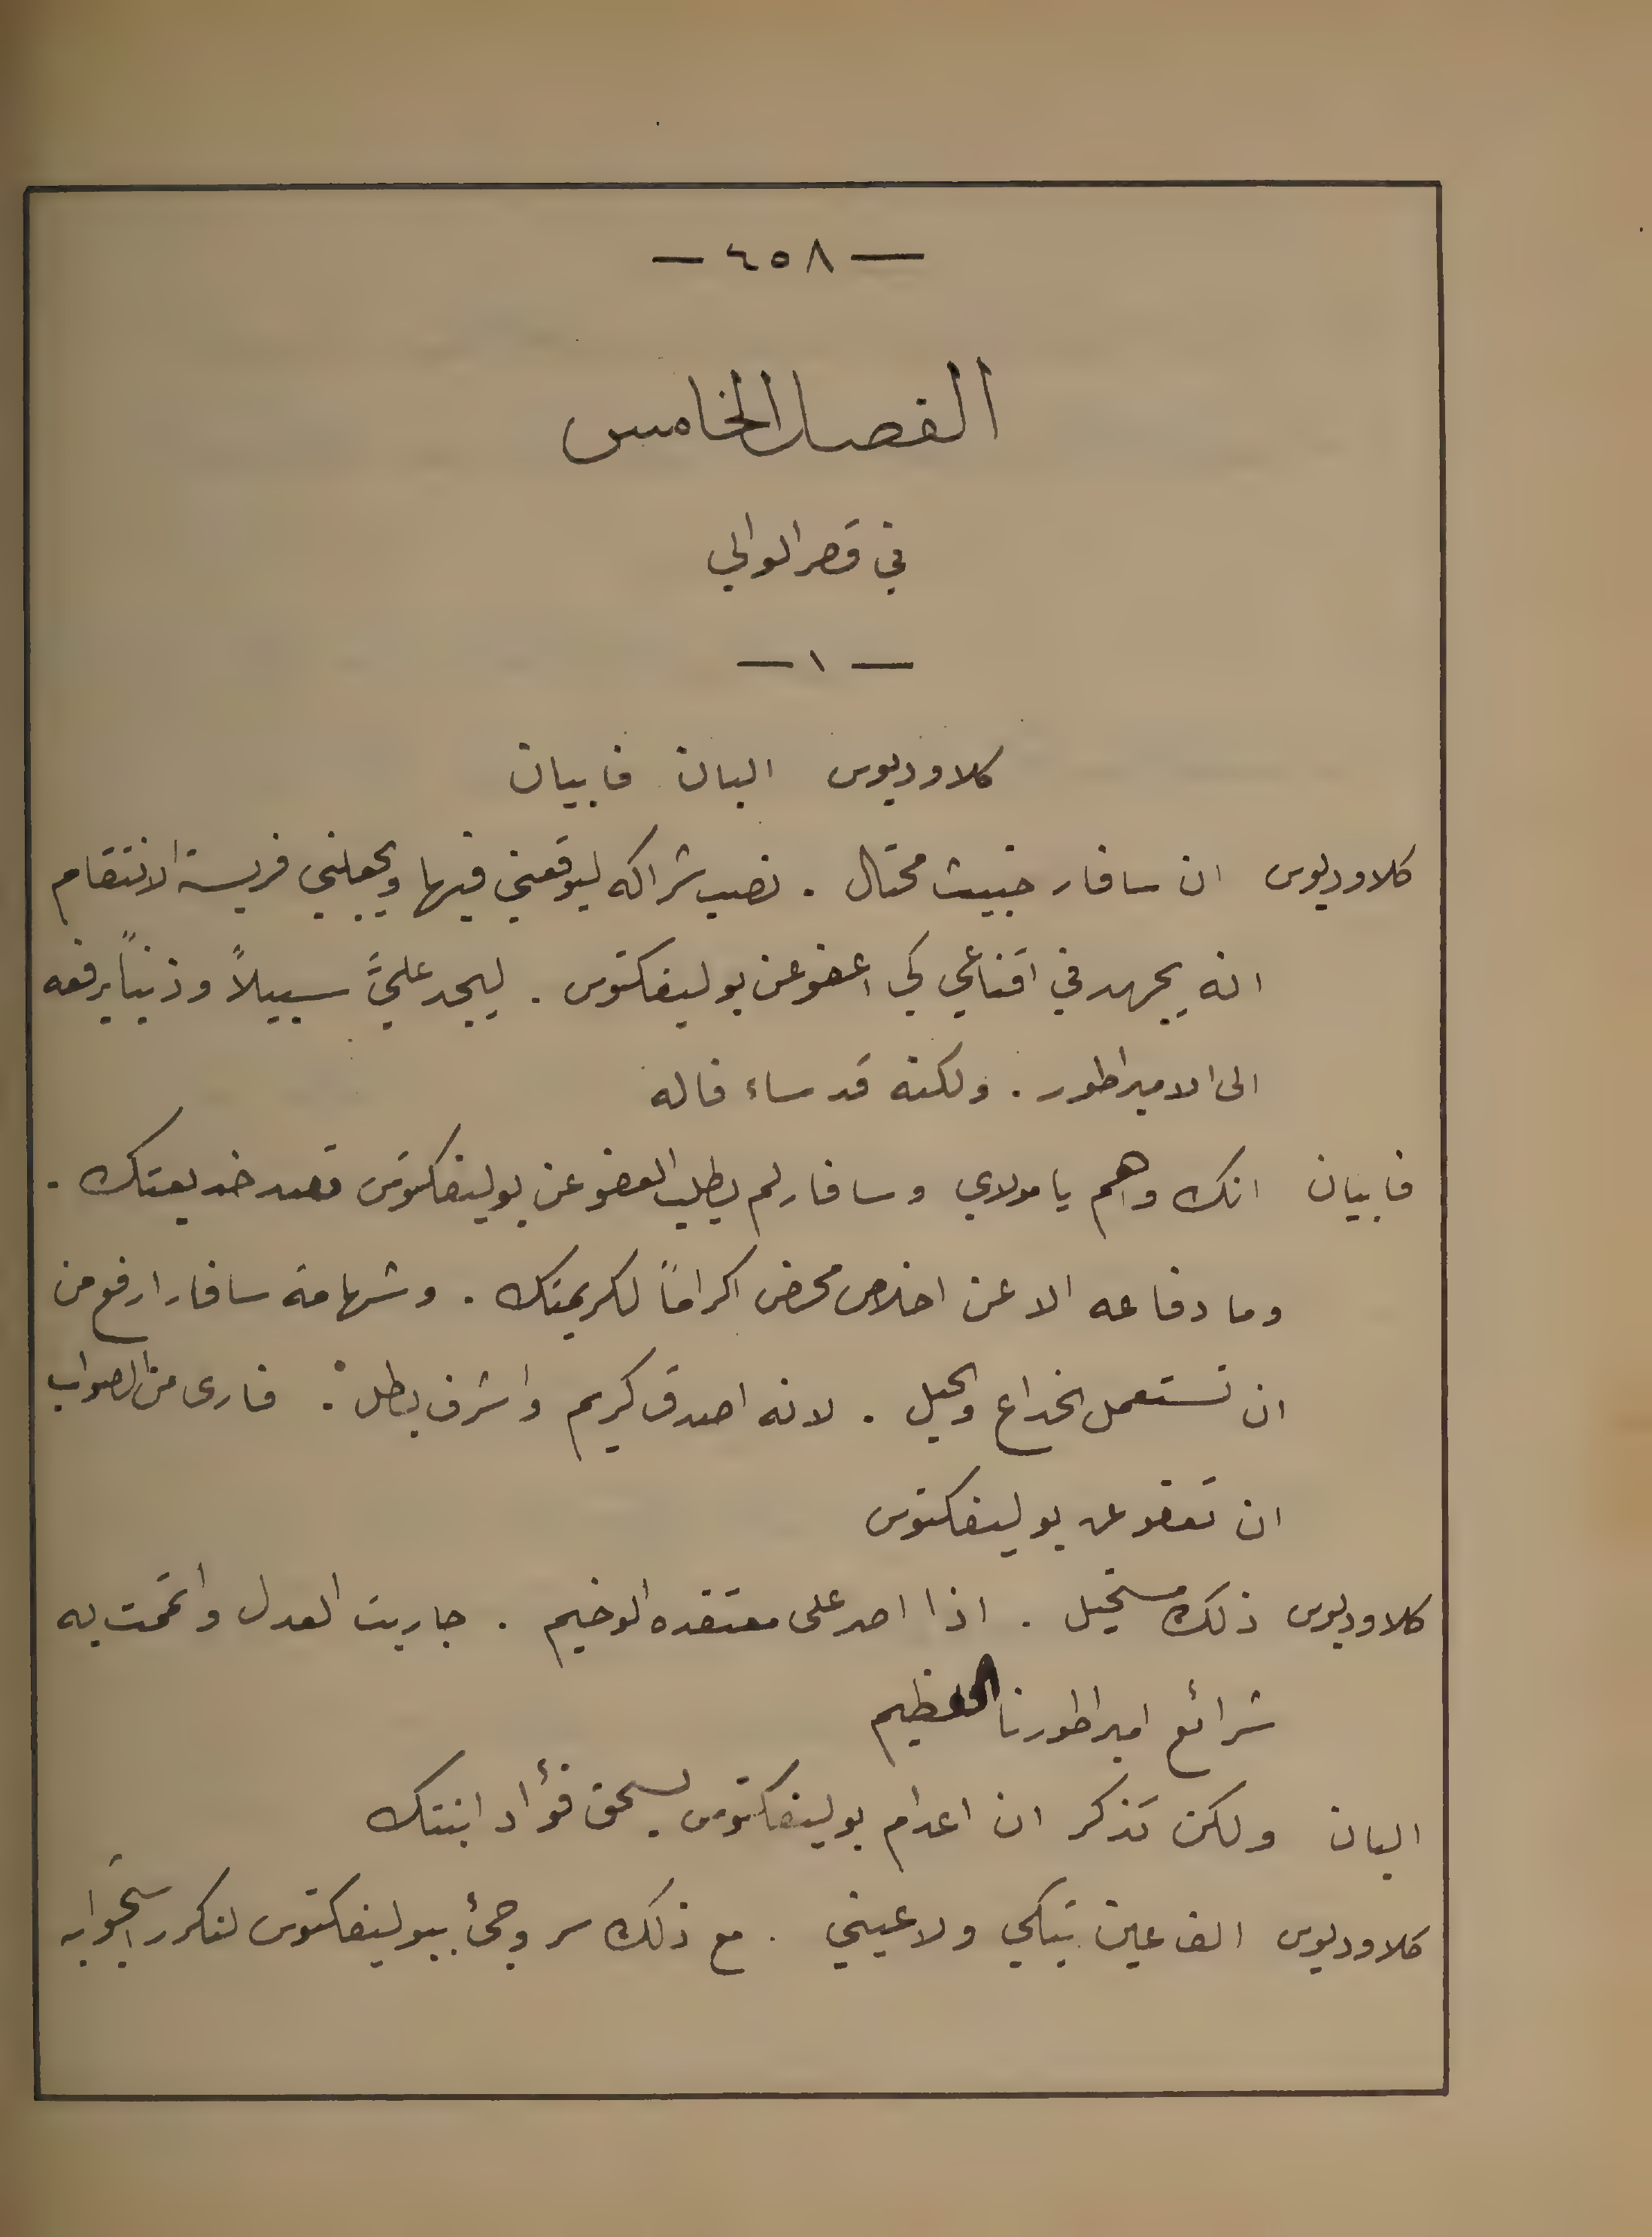 — ٤٥٨ —
الفصل الخامس
في قصر الوالي
— ١ —
كلاوديوس البان فابيان
كلاوديوس ان سافار خبيث محتال . نصب شراكه ليوقعني فيها ويجعلني فريسة الانتقام
انه يجهد في اقناعي كي اعفو عن بوليفكتوس . ليجد عليَّ سبيلاً وذنباً يرفعه
الى الامبراطور . ولكنه قد ساء فاله
فابيان انك واهم يا مولاي وسافار لم يطلب العفو عن بوليفكتوس قصد خديعتك .
وما دفاعه الا عن اخلاص محض اكراماً لكريمتك . وشهامة سافار ارفع من
ان تستعمل الخداع والحيل . لانه اصدق كريم واشرف بطل . فارى من الصواب
ان تعفو عن بوليفكتوس
كلاوديوس ذلك مستحيل . اذا اصر على معتقده الوخيم . جاريت العدل واتممت به
شرائع امبراطورنا العظيم
البان ولكن تذكر ان اعدام بوليفكتوس يسحق فؤاد ابنتك
كلاوديوس الف عين تبكي ولا عيني . مع ذلك سر وجئ ببوليفكتوس لنكرر استجوابه